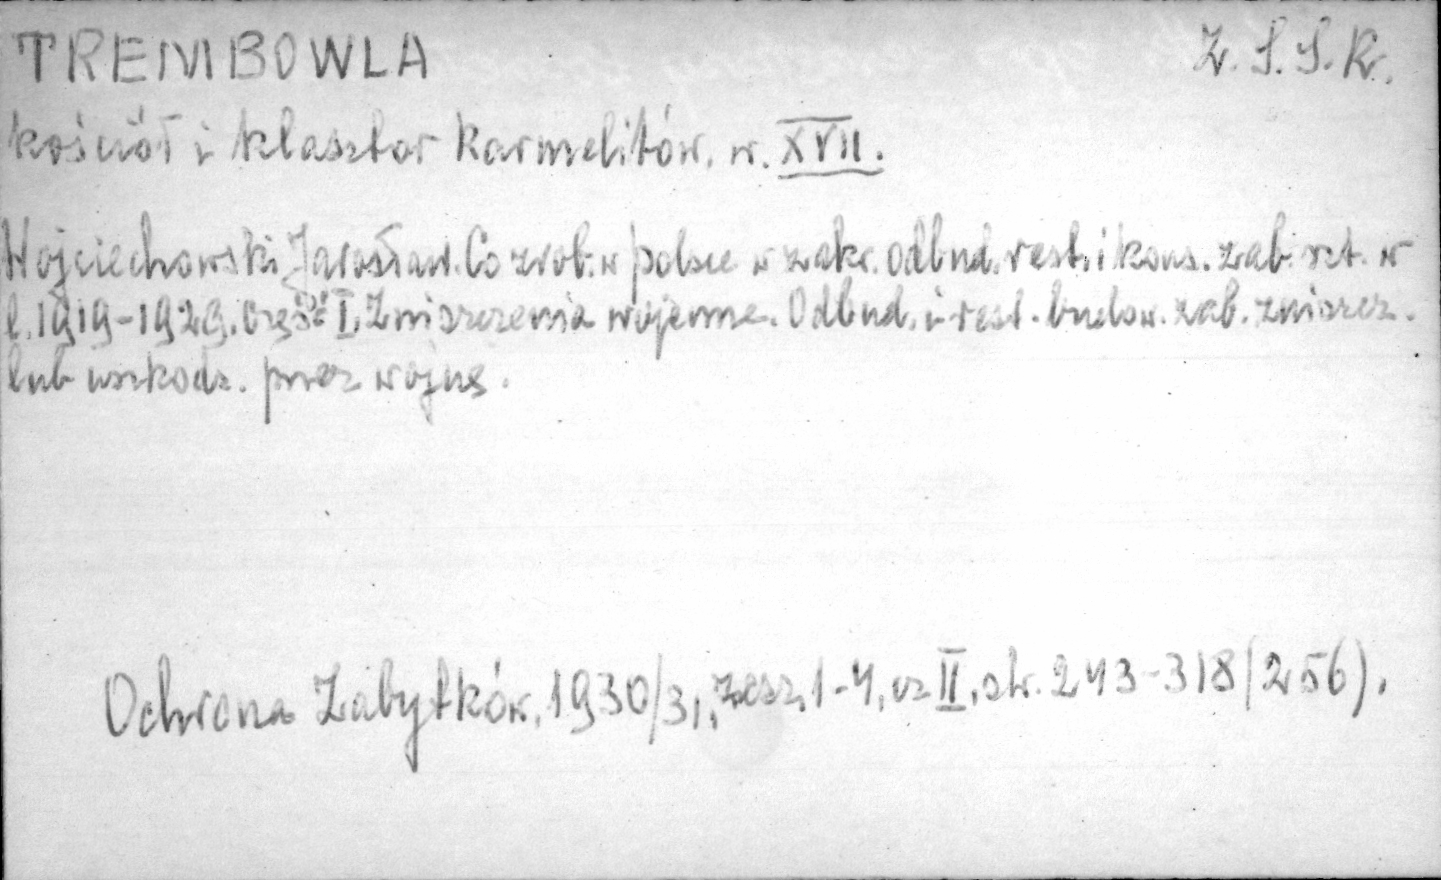 TREMBOWLA Z.S.S.R.
kościół i klasztor Karmelitów. w. XVII.
Wojciechowski Jarosław. Co zrob. w polsce w zakr. odbud. rest. i kons. zab. szt. w
l. 1919-1929. część I. Zniszczenia wojenne. Odbud. i rest. budow. zab. zniszcz.
lub uszkodz. przez wojnę.
Ochrona Zabytków, 1930/31, zesz. 1-4, cz II, str. 243-318 (256).